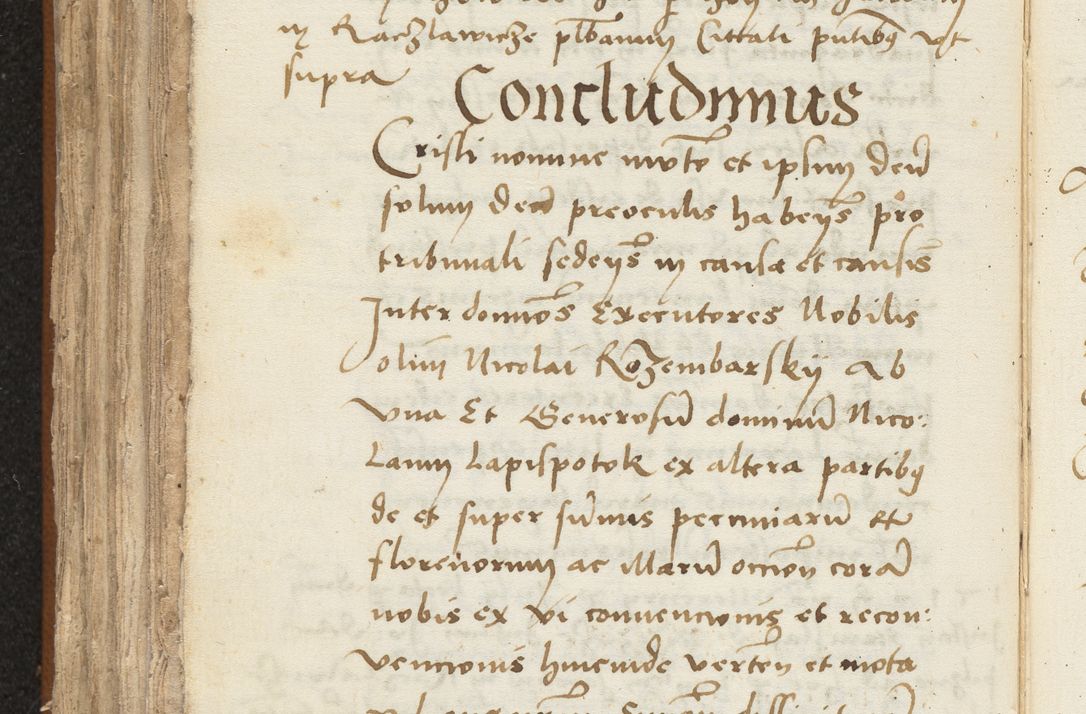 in Raczlawicze plbanum Cittati pntibus ut
supra
Concludimus
Cristi nomine invoto et ipsum deu
solum deu preoculis habens pro
tribunali sedens in causa et causis
Inter domnos Executores Nobilis
olim Nicolai Rozembarskij Ab
vna Et Generosu dominu Nico:
Laum Lapispotok ex altera partibus
de et super sumis pecuniaru et
florenorum ac illaru occon cora
nobis ex vi convencionis et recon:
vencionis hincinde verten et mota